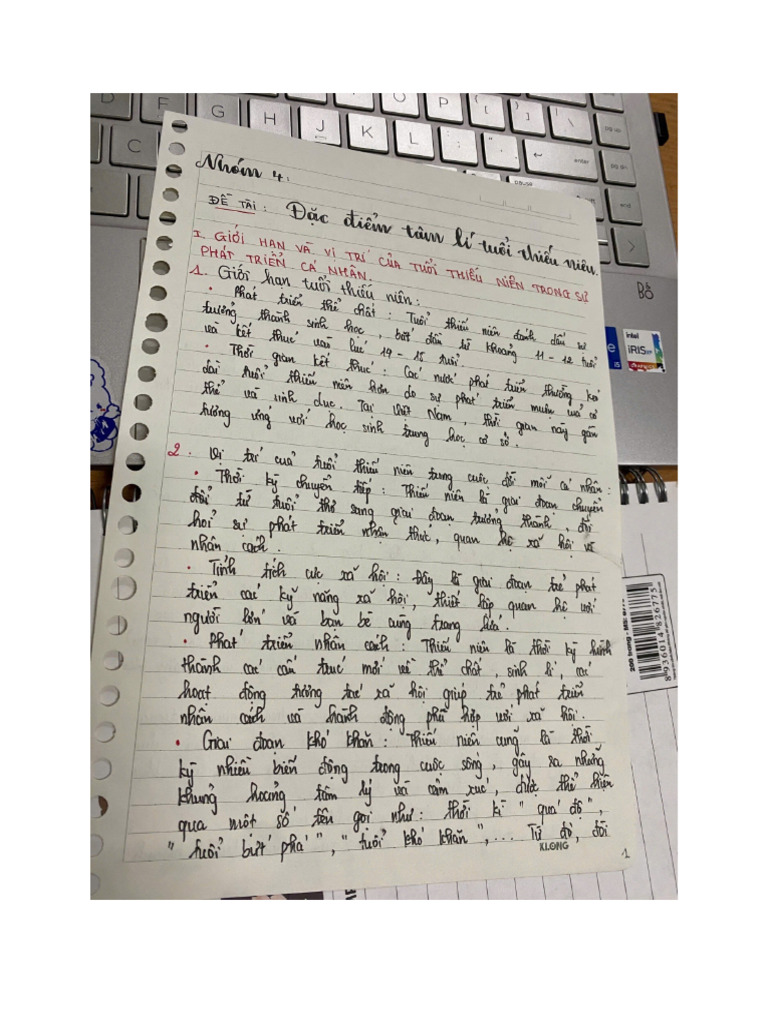 Nhóm 4:
ĐỀ TÀI: Đặc điểm tâm lí tuổi thiếu niên.
I. GIỚI HẠN VÀ VỊ TRÍ CỦA TUỔI THIẾU NIÊN TRONG SỰ
PHÁT TRIỂN CÁ NHÂN.
1. Giới hạn tuổi thiếu niên:
• Phát triển thể chất: Tuổi thiếu niên đánh dấu sự
trưởng thành sinh học, bắt đầu từ khoảng 11 - 12 tuổi
và kết thúc vào lúc 14 - 15 tuổi.
• Thời gian kết thúc: Các nước phát triển thường kéo
dài tuổi thiếu niên hơn do sự phát triển muộn của cơ
thể và sinh dục. Tại Việt Nam, thời gian này gần
tương ứng với học sinh trung học cơ sở.
2. Vị trí của tuổi thiếu niên trong cuộc đời mỗi cá nhân:
• Thời kỳ chuyển tiếp: Thiếu niên là giai đoạn chuyển
đổi từ tuổi thơ sang giai đoạn trưởng thành, đòi
hỏi sự phát triển nhận thức, quan hệ xã hội và
nhân cách.
• Tính tích cực xã hội: Đây là giai đoạn trẻ phát
triển các kỹ năng xã hội, thiết lập quan hệ với
người lớn và bạn bè cùng trang lứa.
• Phát triển nhân cách: Thiếu niên là thời kỳ hình
thành các cấu trúc mới về thể chất, sinh lí, các
hoạt động tương tác xã hội giúp trẻ phát triển
nhân cách và hành động phù hợp với xã hội.
• Giai đoạn khó khăn: Thiếu niên cũng là thời
kỳ nhiều biến động trong cuộc sống, gây ra những
khủng hoảng tâm lý và cảm xúc, được thể hiện
qua một số tên gọi như: thời kì "quá độ",
"tuổi bứt phá", "tuổi khó khăn",... Từ đó, đòi
KLONG
1
intel
iRIS xe
i5
200 trang - MS:
8936014826775
enter
pg up
pg dn
end
G
H
J
K
L
O
P
D
C